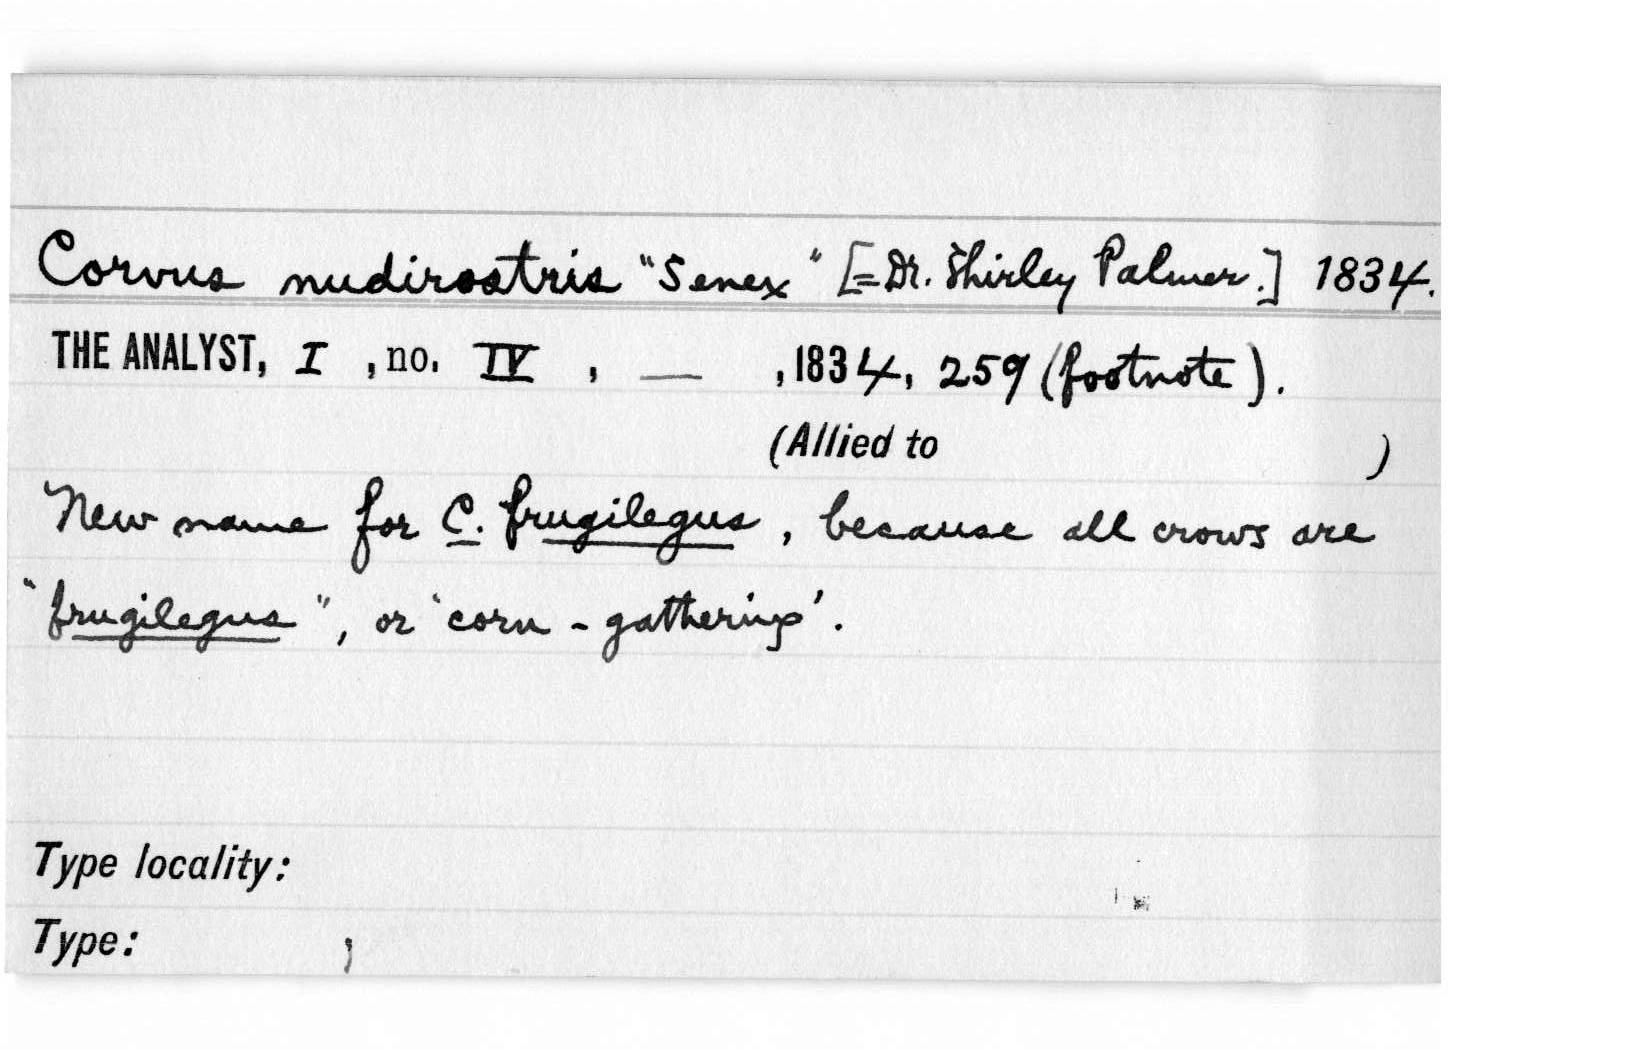 Corvus nudirostris "Senex" [= Dr. Shirley Palmer.] 1834.
THE ANALYST, I , no. IV , — , 1834, 259 (footnote).
(Allied to )
New name for C. frugilegus, because all crows are
"frugilegus", or 'corn-gathering'.
Type locality:
Type: